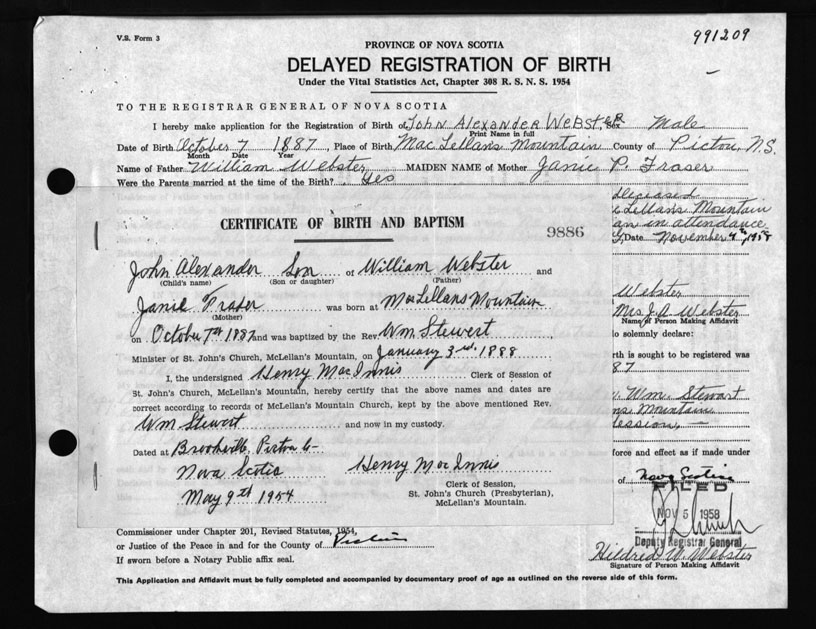 V.S. Form 3
991209
PROVINCE OF NOVA SCOTIA
DELAYED REGISTRATION OF BIRTH
Under the Vital Statistics Act, Chapter 308 R. S. N. S. 1954
TO THE REGISTRAR GENERAL OF NOVA SCOTIA
I hereby make application for the Registration of Birth of John Alexander Webster Sex Male
Print Name in full
Date of Birth October 7 1887 Place of Birth MacLellans Mountain County of Pictou, N.S.
Month Date Year
Name of Father William Webster MAIDEN NAME of Mother Janie P. Fraser
Were the Parents married at the time of the Birth? Yes
deceased
Lellans Mountain
an in attendance
Date November 4th, 1958
CERTIFICATE OF BIRTH AND BAPTISM
9886
John Alexander Son of William Webster and
(Child's name) (Son or daughter) (Father)
Janie Fraser was born at MacLellans Mountain
(Mother)
on October 7th 1887 and was baptized by the Rev. Wm Stewert
Minister of St. John's Church, McLellan's Mountain, on January 3rd. 1888
I, the undersigned Henry MacInnis Clerk of Session of
St. John's Church, McLellan's Mountain, hereby certify that the above names and dates are
correct according to records of McLellan's Mountain Church, kept by the above mentioned Rev.
Wm Stewert and now in my custody.
Dated at Brookville Pictou Co
Nova Scotia Henry MacInnis
May 9th 1954
Clerk of Session,
St. John's Church (Presbyterian),
McLellan's Mountain.
Webster
Mrs J. A Webster
Name of Person Making Affidavit
o solemnly declare:
rth is sought to be registered was
87
Wm. Stewart
ns Mountain
ession
force and effect as if made under
of Nova Scotia
FILED
NOV 5 1958
Deputy Registrar General
Commissioner under Chapter 201, Revised Statutes, 1954,
or Justice of the Peace in and for the County of Pictou
If sworn before a Notary Public affix seal.
Hildred W. Webster
Signature of Person Making Affidavit
This Application and Affidavit must be fully completed and accompanied by documentary proof of age as outlined on the reverse side of this form.